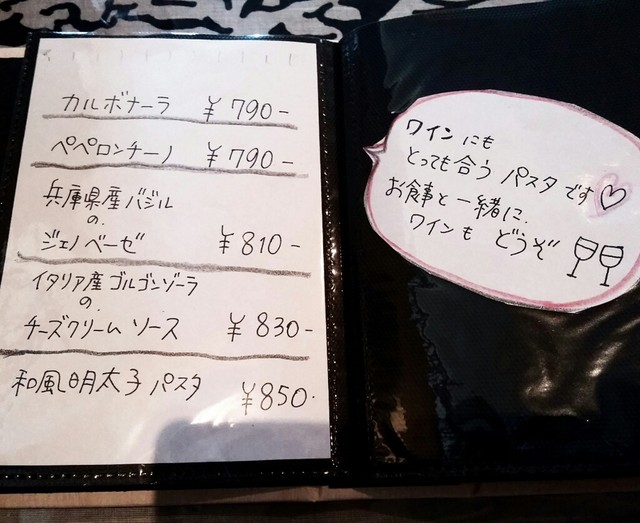 カルボナーラ ¥790-
ペペロンチーノ ¥790-
兵庫県産バジル
の
ジェノベーゼ ¥810-
イタリア産ゴルゴンゾーラ
の
チーズクリームソース ¥830-
和風明太子パスタ ¥850-
ワインにも
とっても合うパスタです
お食事と一緒に、
ワインもどうぞ